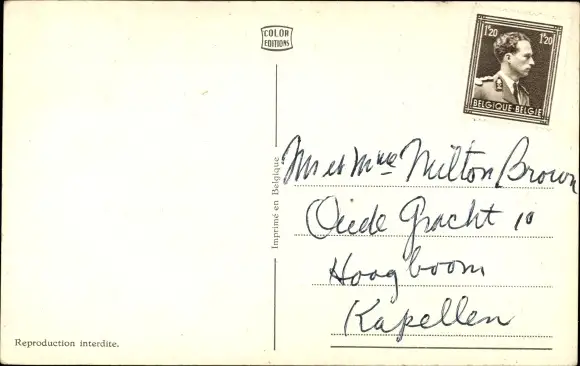 COLOR
EDITIONS
1'20 1'20
BELGIQUE BELGIE
Imprimé en Belgique
Mr et Mme Milton Brown
Oude Gracht 10
Hoogboom
Kapellen
Reproduction interdite.